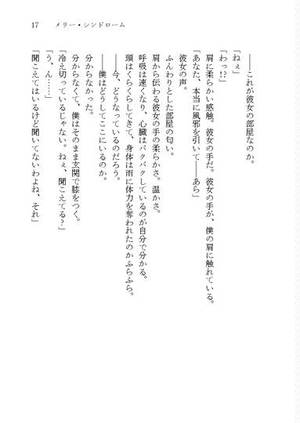 17　メリー・シンドローム
――これが彼女の部屋なのか。
「ねぇ」
「わっ!?」
肩に柔らかい感触。彼女の手だ。彼女の手が、僕の肩に触れている。
「あなた、本当に風邪を引いて――あら」
彼女の声。
ふんわりとした部屋の匂い。
肩から伝わる彼女の手の柔らかさ。温かさ。
呼吸は速くなり、心臓はバクバクしているのが自分で分かる。
頭はくらくらしてきて、身体は雨に体力を奪われたのかふらふら。
――今、どうなっているのだろう。
――僕はどうしてここにいるのか。
分からなかった。
分からなくて、僕はそのまま玄関で膝をつく。
「冷え切っているじゃない。ねぇ、聞こえてる?」
「う、ん……」
「聞こえてはいるけど聞いてないわよね、それ」